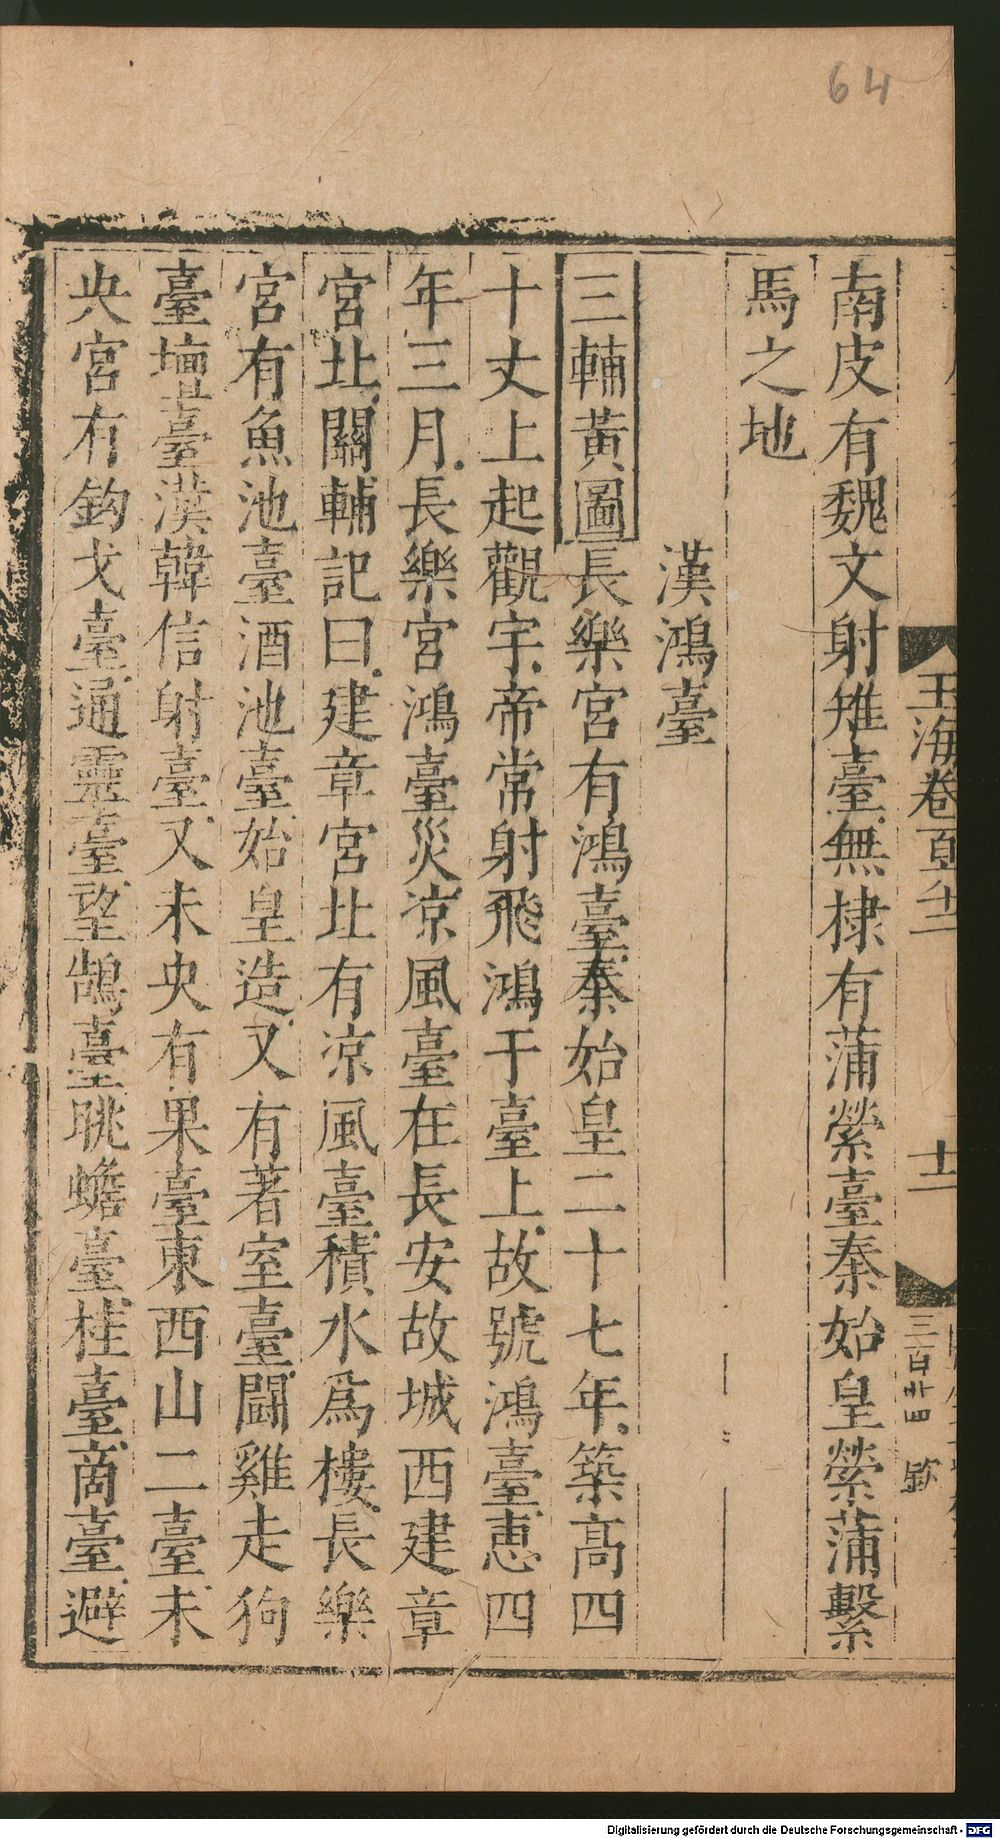 64
玉海卷百六十二
十二
三百廿四
南皮有魏文射雉臺無棣有蒲縈臺秦始皇縈蒲繫
馬之地
漢鴻臺
三輔黃圖長樂宮有鴻臺秦始皇二十七年築高四
十丈上起觀宇帝常射飛鴻于臺上故號鴻臺惠四
年三月長樂宮鴻臺災凉風臺在長安故城西建章
宮北關輔記曰建章宮北有凉風臺積水爲樓長樂
宮有魚池臺酒池臺始皇造又有著室臺鬪雞走狗
臺壇臺漢韓信射臺又未央有果臺東西山二臺未
央宮有鈎弋臺通靈臺望鵠臺眺蟾臺桂臺商臺避
Digitalisierung gefördert durch die Deutsche Forschungsgemeinschaft - DFG